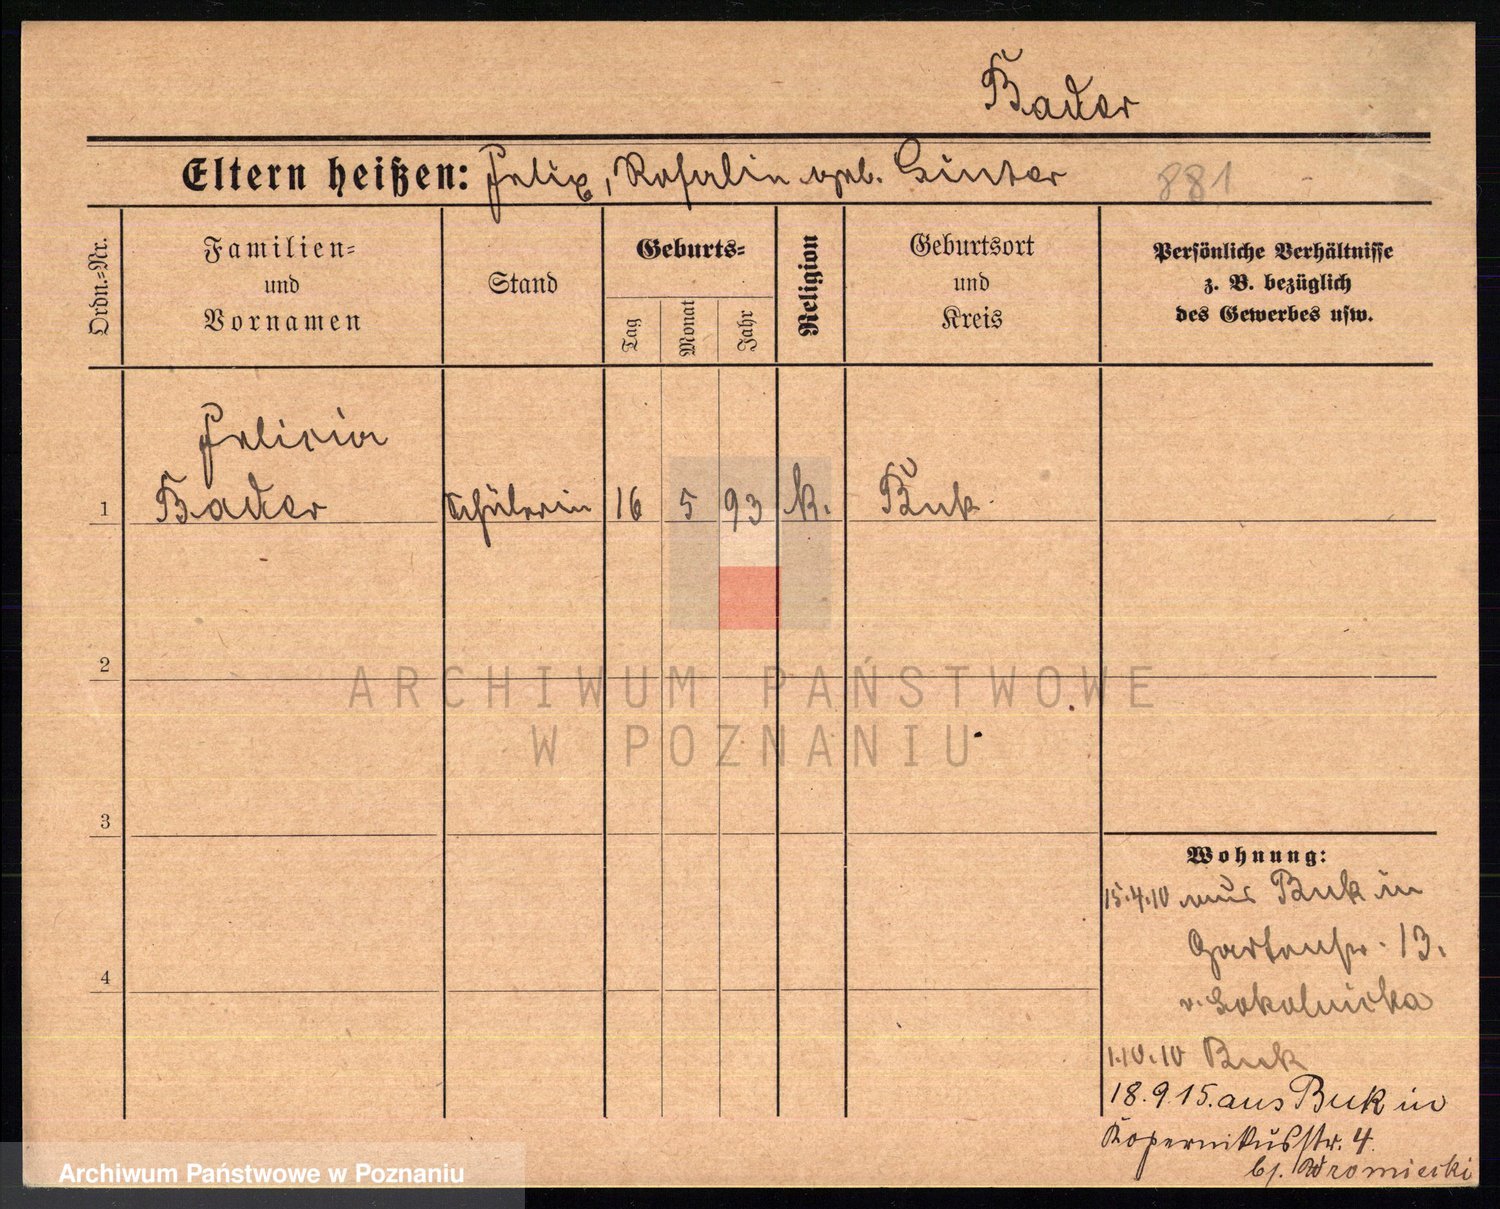 Bader
Eltern heißen: Felix, Rosalie geb. Ginter 881
Ordn.-Nr.
Familien-
und
Vornamen
Stand
Geburts-
Tag
Monat
Jahr
Religion
Geburtsort
und
Kreis
Persönliche Verhältnisse
z. B. bezüglich
des Gewerbes usw.
Felicia
1 Bader Schülerin 16 5 93 k. Buk
2
3
4
Wohnung:
15.4.10 aus Buk in
Gartenstr. 13.
v. Sokolnicka
1.10.10 Buk
18.9.15. aus Buk in
Kopernikusstr. 4.
bj. Wromiecki
ARCHIWUM PAŃSTWOWE
W POZNANIU
Archiwum Państwowe w Poznaniu